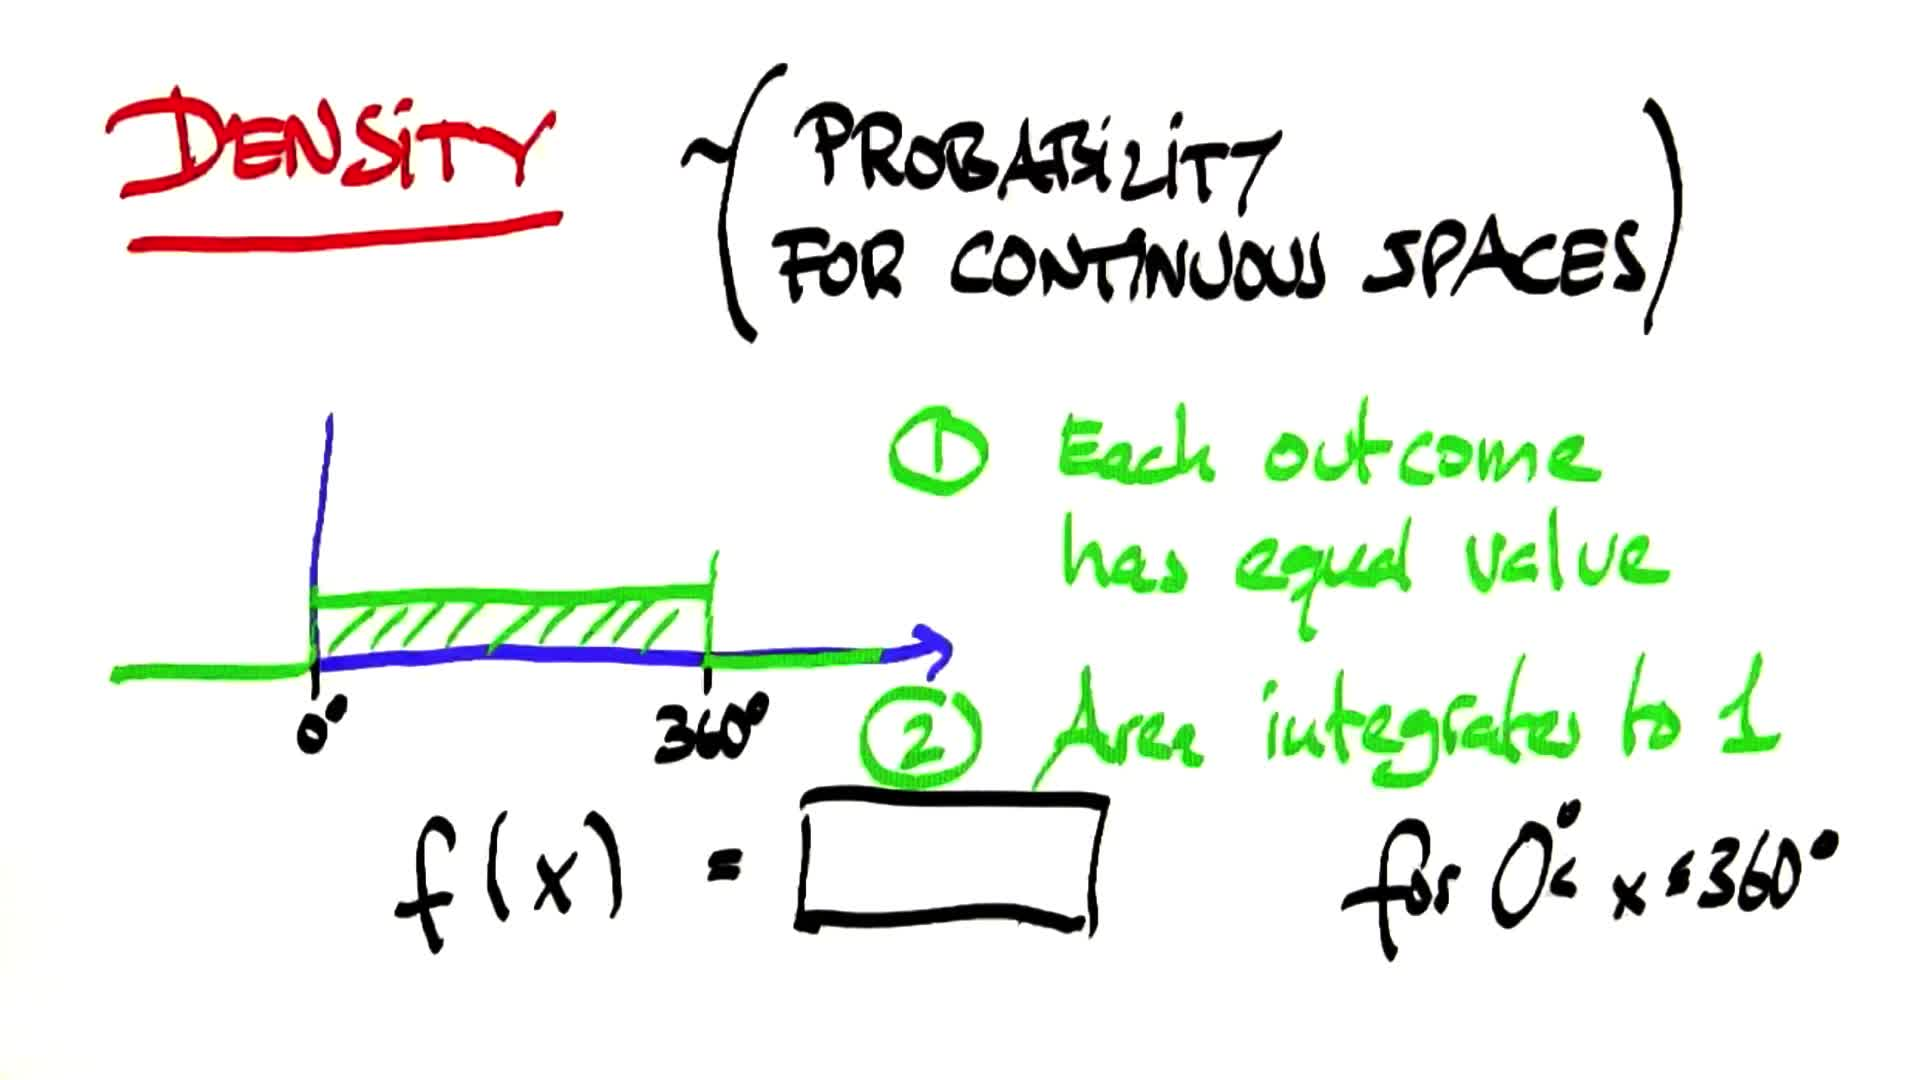 DENSiTY
~ ( PROBABiLiTY
FOR CONTINUOUS SPACES )
① Each outcome
has equal value
② Area integrates to 1
0° 360°
f(x) = for 0° ≤ x ≤ 360°